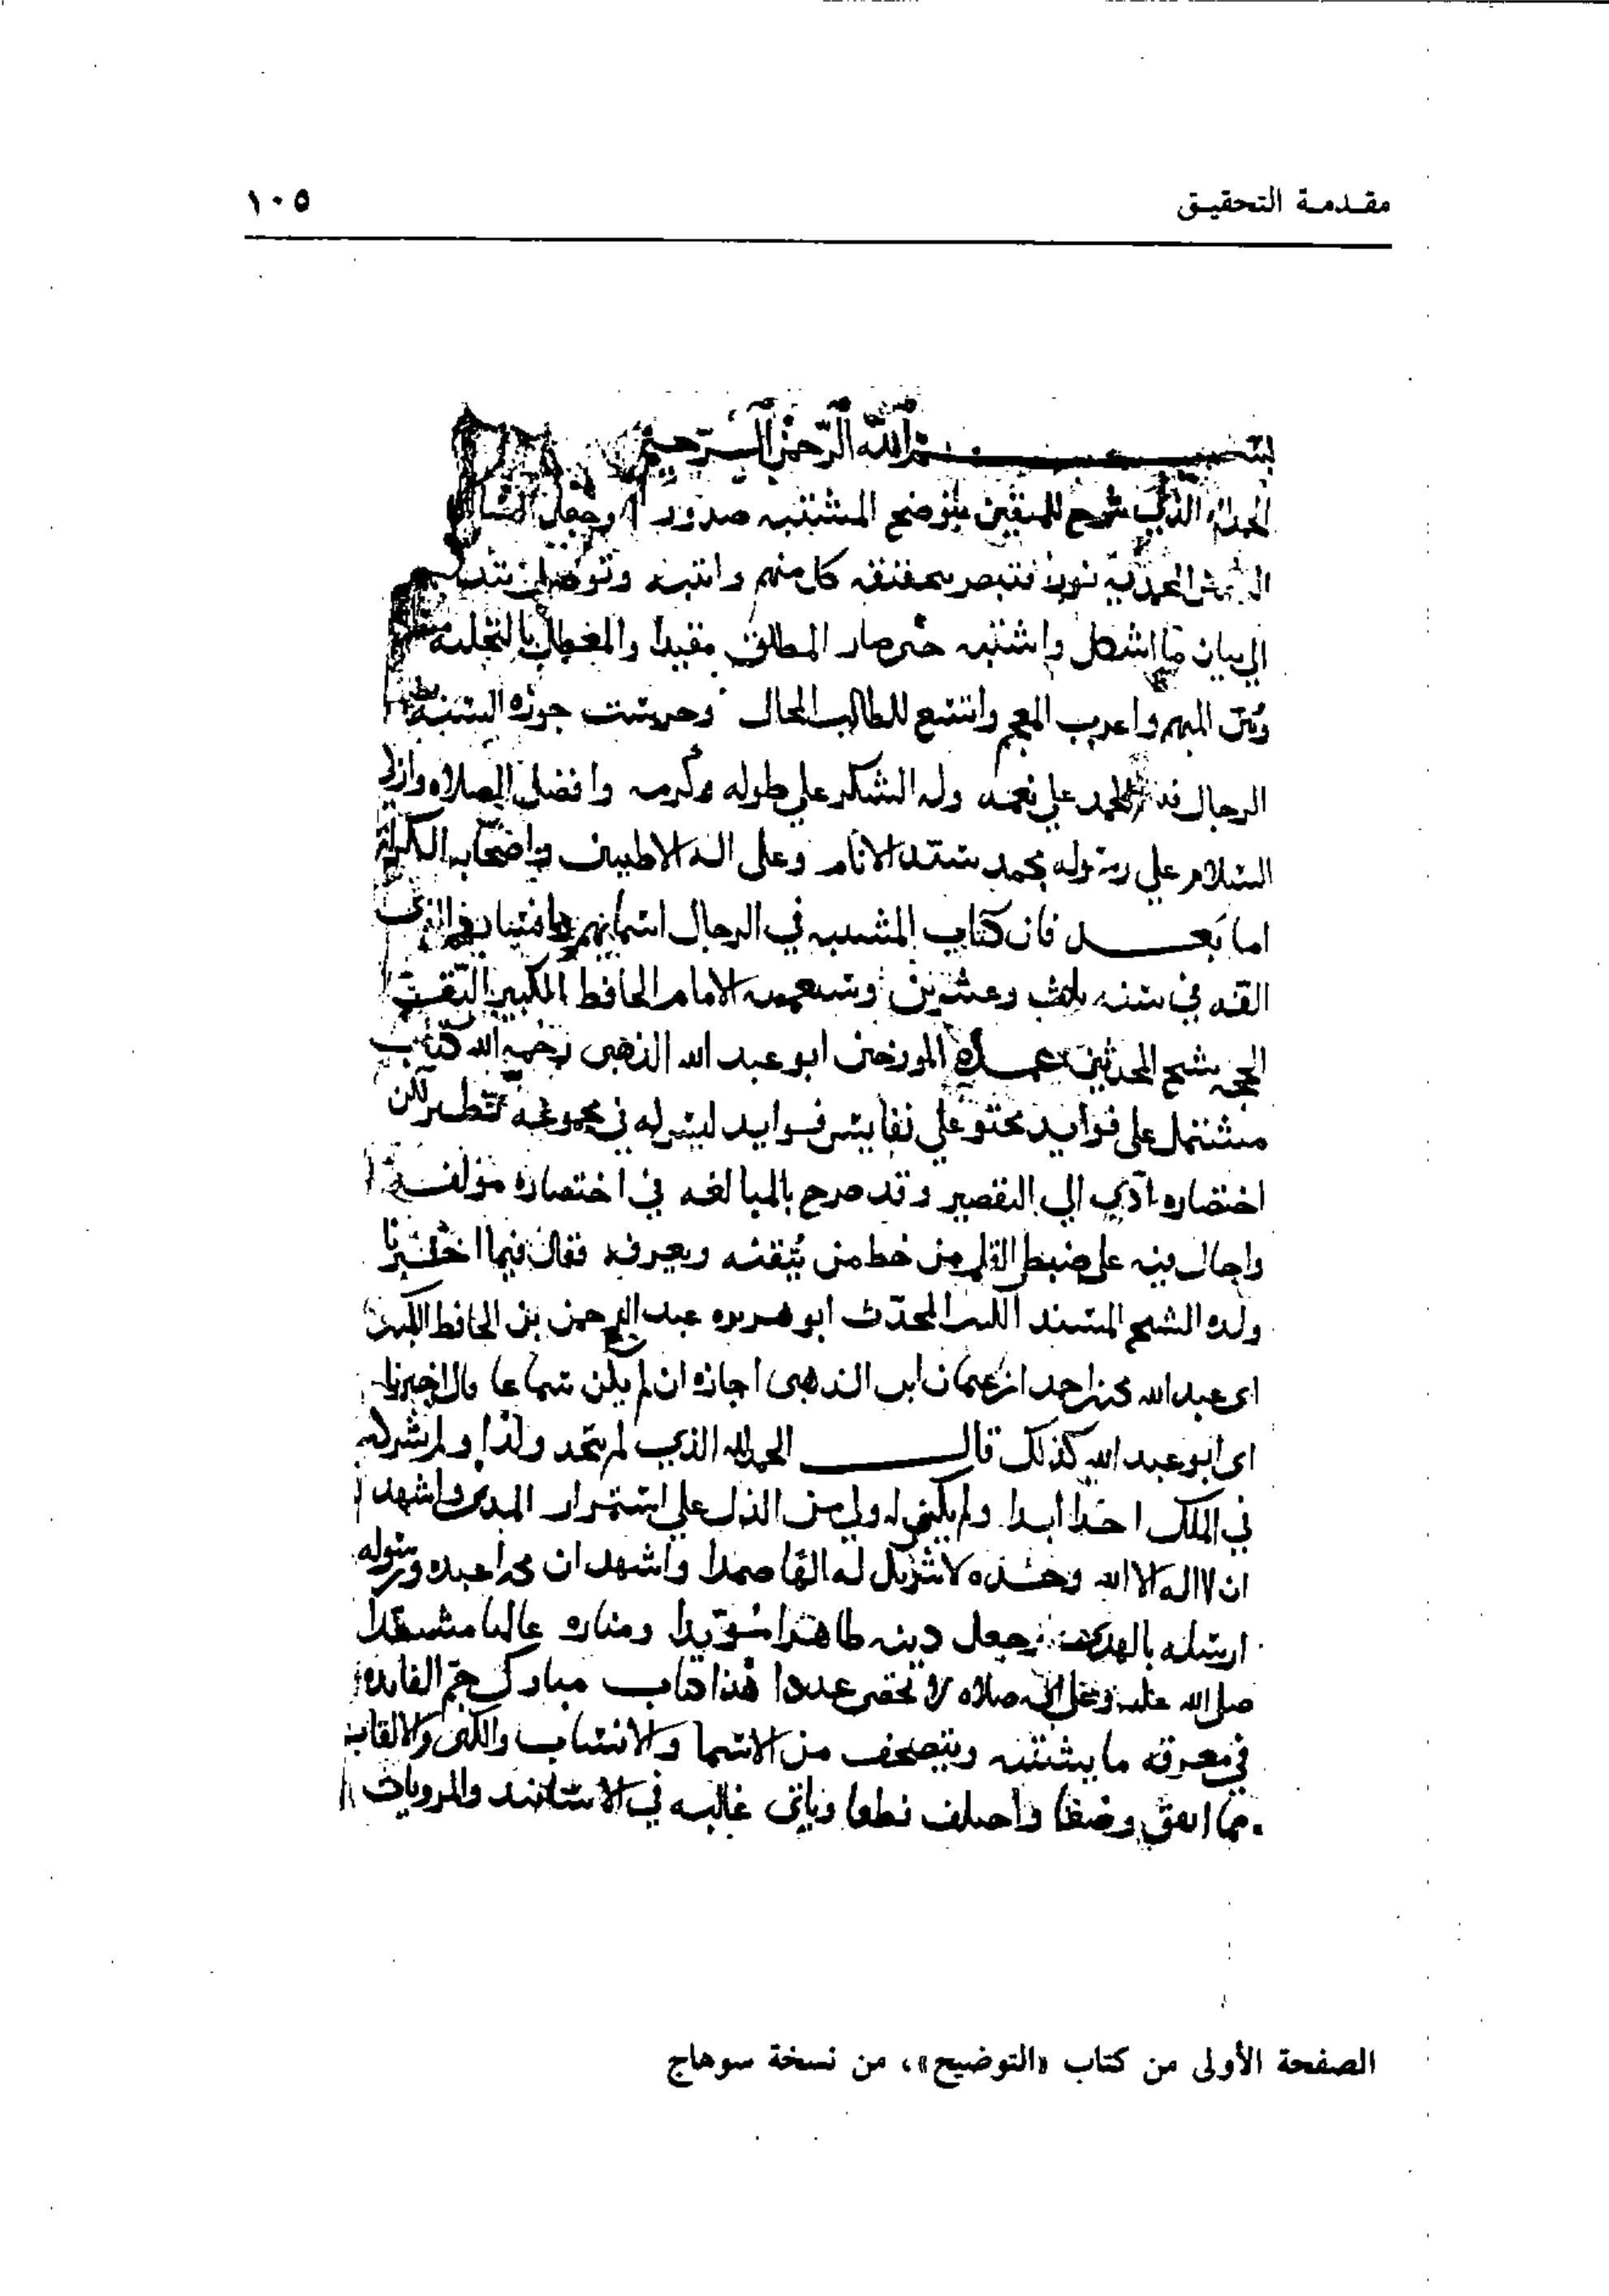 مقدمة التحقيق ١٠٥
بسم الله الرحمن الرحيم
الحمد لله الذي شرح للمتقين بتوضيح المشتبه صدورا وجعل
المحمدية نورا فتبصر كل منهم وانتبه
الى بيان ما اشكل واشتبه حتى صار المطلق مقيدا والمغفل
المبهم واعرب المعجم واتسع للطالب المجال وحرست حوزة السنة
الرجال فله الحمد على نعمه وله الشكر على طوله وكرمه وافضل الصلاه وازكى
السلام على رسوله محمد سيد الانام وعلى اله الاطيبين واصحابه الكرام
اما بعد فان كتاب المشتبه في الرجال اسمائهم وانسابهم الذي
الفه في سنه ثلث وعشرين وسبعمه الامام الحافظ الكبير الثقه
الحجه شيخ المحدثين عمده المورخين ابو عبد الله الذهبى رحمه الله كتاب
مشتمل على فوايد محتو على نفايس فرايد ليس له في مجموعه نظير لكن
اختصاره ادى الى التقصير وقد صرح بالمبالغه في اختصاره مولفه
واحال فيه على ضبط القلم من خط من يتقنه ويعرفه فقال فيما اخبرنا
ولده الشيخ المسند المحدث ابو هريره عبد الرحمن بن الحافظ الكبير
ابى عبد الله محمد بن احمد بن عثمان ابن الذهبى اجازه ان لم يكن سماعا قال اخبرنا
ابى ابو عبد الله كذلك قال الحمد لله الذي لم يتخذ ولدا ولم يشرك
في الملك احدا ابدا ولم يكن له ولي من الذل على استمرار المدى واشهد
ان لا اله الا الله وحده لا شريك له الها صمدا واشهد ان محمدا عبده ورسوله
ارسله بالهدى وجعل دينه ظاهرا مويدا ومناره عاليا مشيدا
صلى الله عليه وعلى اله صلاه لا تحصر عددا هذا كتاب مبارك جم الفايده
في معرفه ما يشتبه ويتصحف من الاسما والانساب والكنى والالقاب
مما اتفق وضعا واختلف نطقا وياتى غالبه في الاسانيد والمرويات
الصفحة الأولى من كتاب «التوضيح»، من نسخة سوهاج